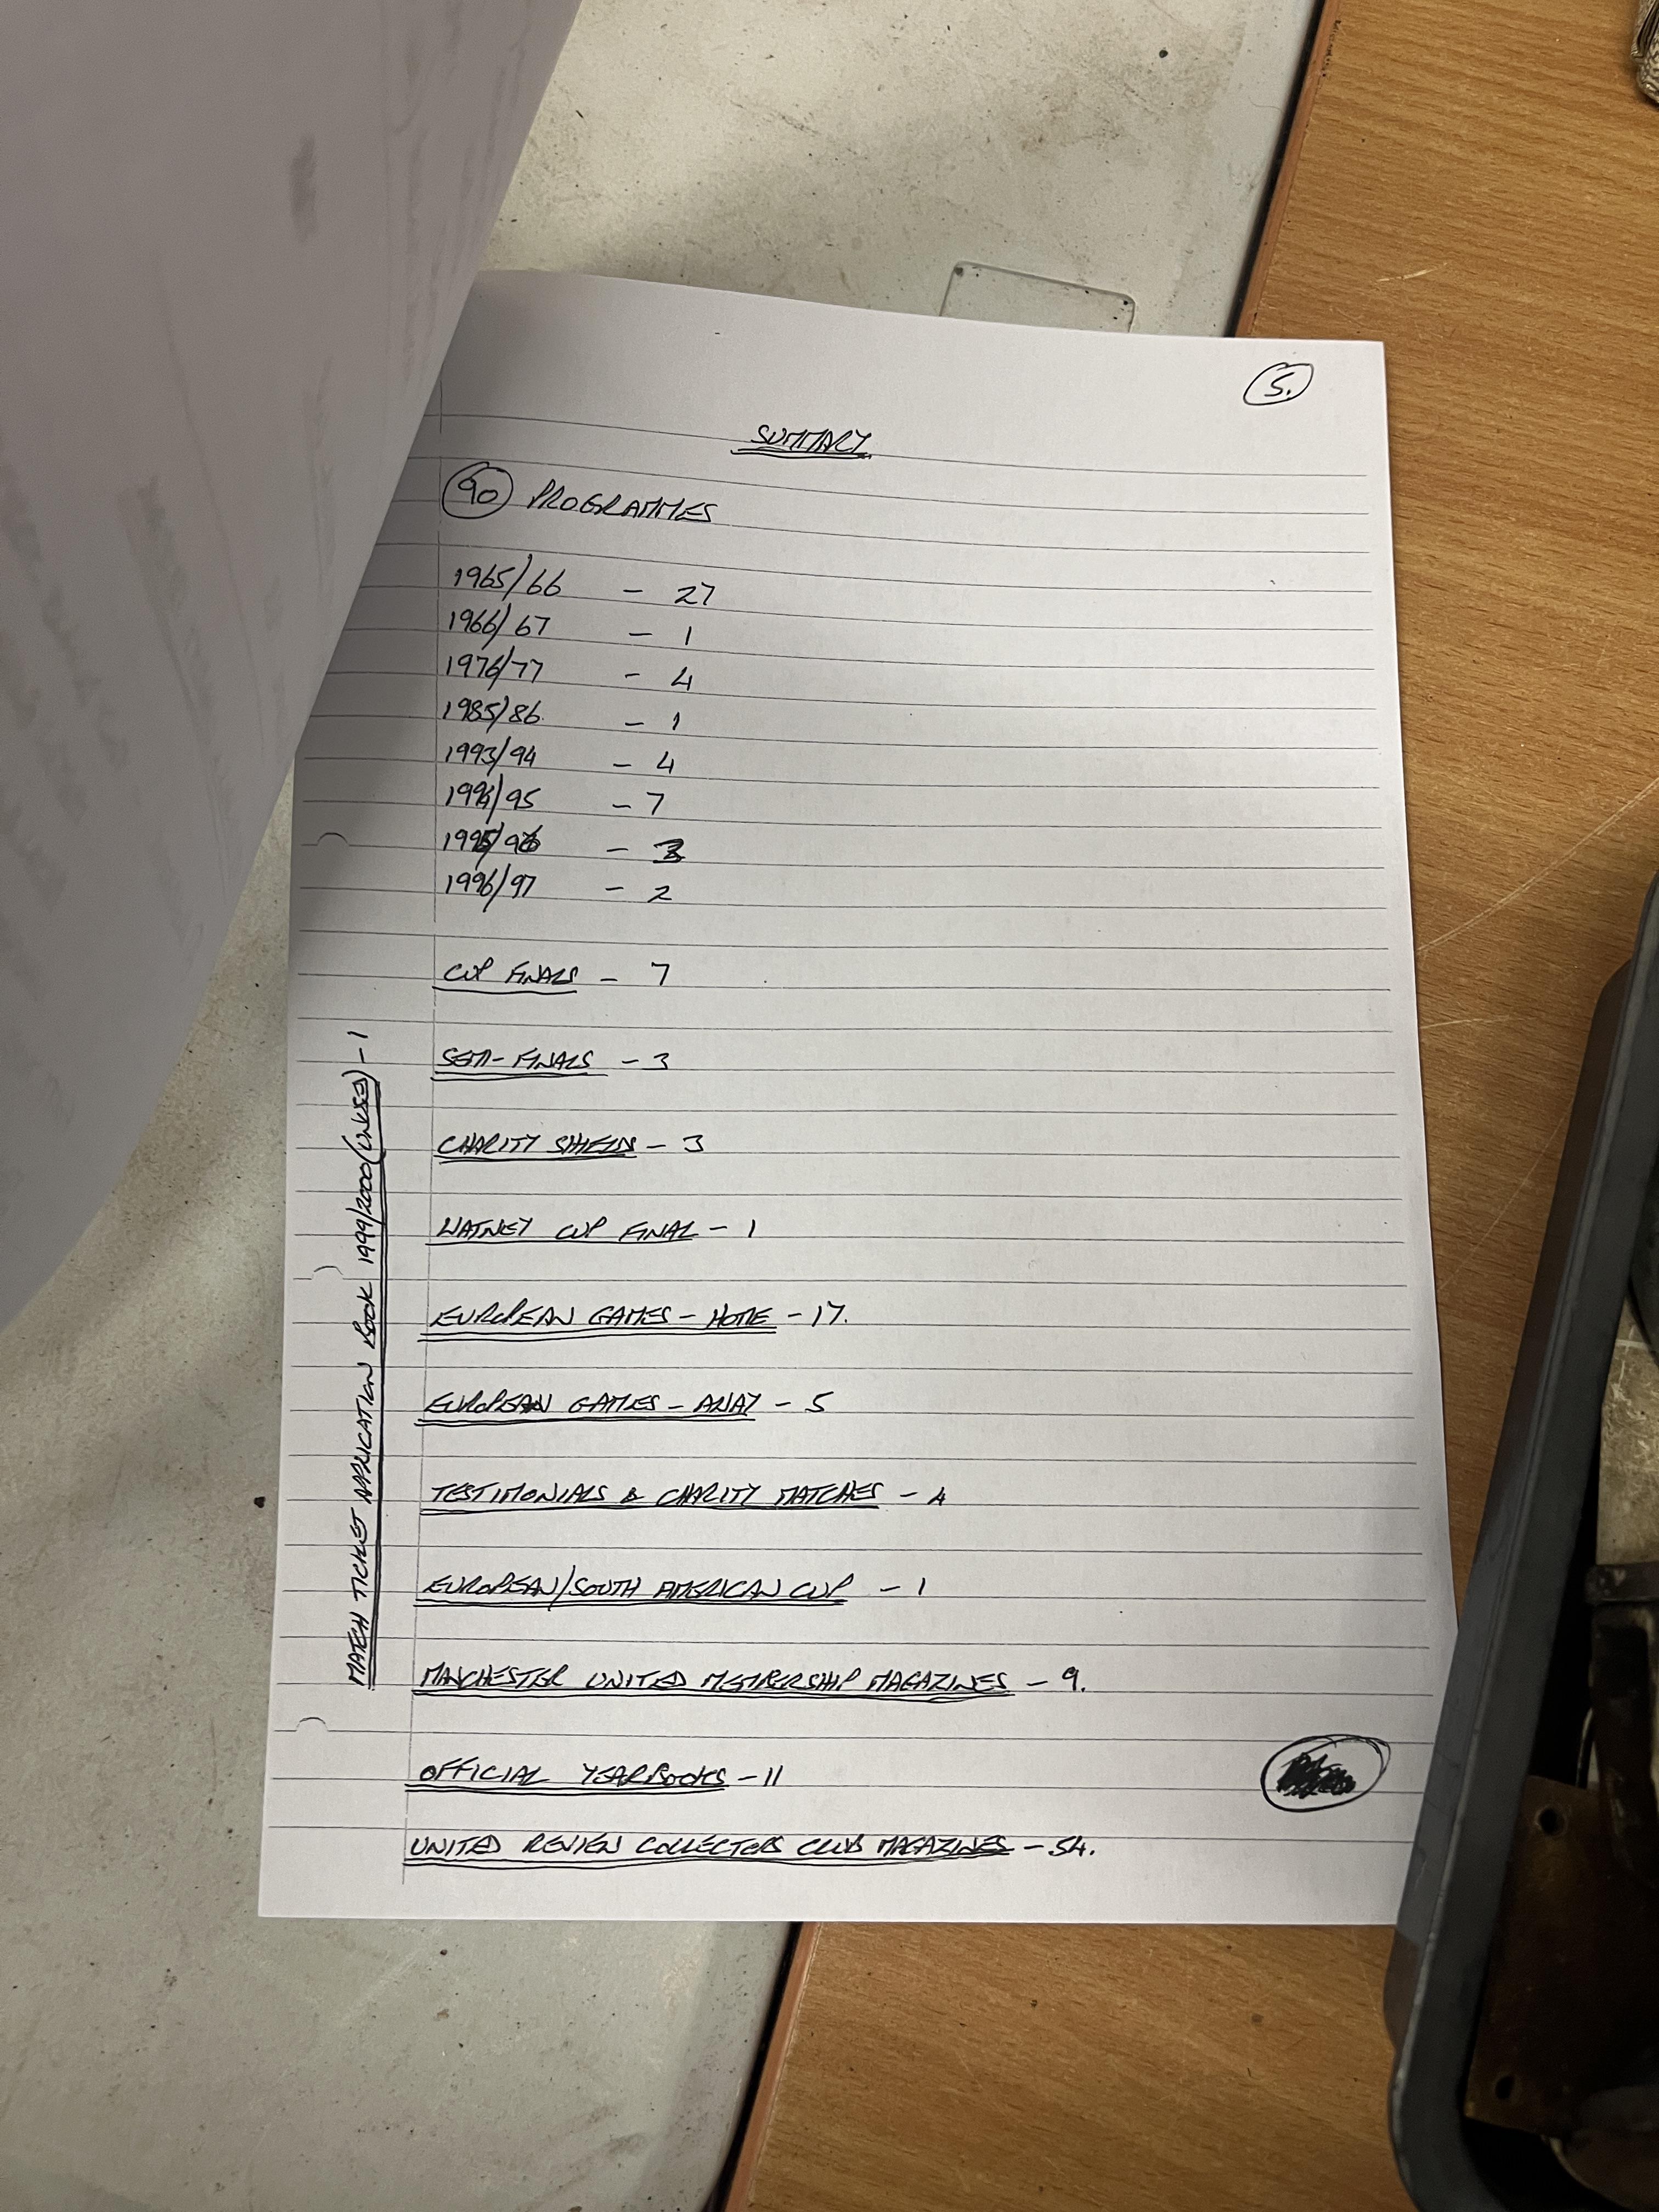 5.
SUMMARY
90 PROGRAMMES
1965/66 - 27
1966/67 - 1
1976/77 - 4
1985/86. - 1
1993/94 - 4
1994/95 - 7
1995/96 - 3
1996/97 - 2
CUP FINALS - 7
SEMI-FINALS - 3
CHARITY SHIELDS - 3
WATNEY CUP FINAL - 1
EUROPEAN GAMES - HOME - 17.
EUROPEAN GAMES - AWAY - 5
TESTIMONIALS & CHARITY MATCHES - 4
EUROPEAN/SOUTH AMERICAN CUP - 1
MANCHESTER UNITED MEMBERSHIP MAGAZINES - 9.
OFFICIAL YEARBOOKS - 11
UNITED REVIEW COLLECTORS CLUB MAGAZINES - 54.
MATCH TICKET APPLICATION BOOK 1999/2000 (UNUSED) - 1